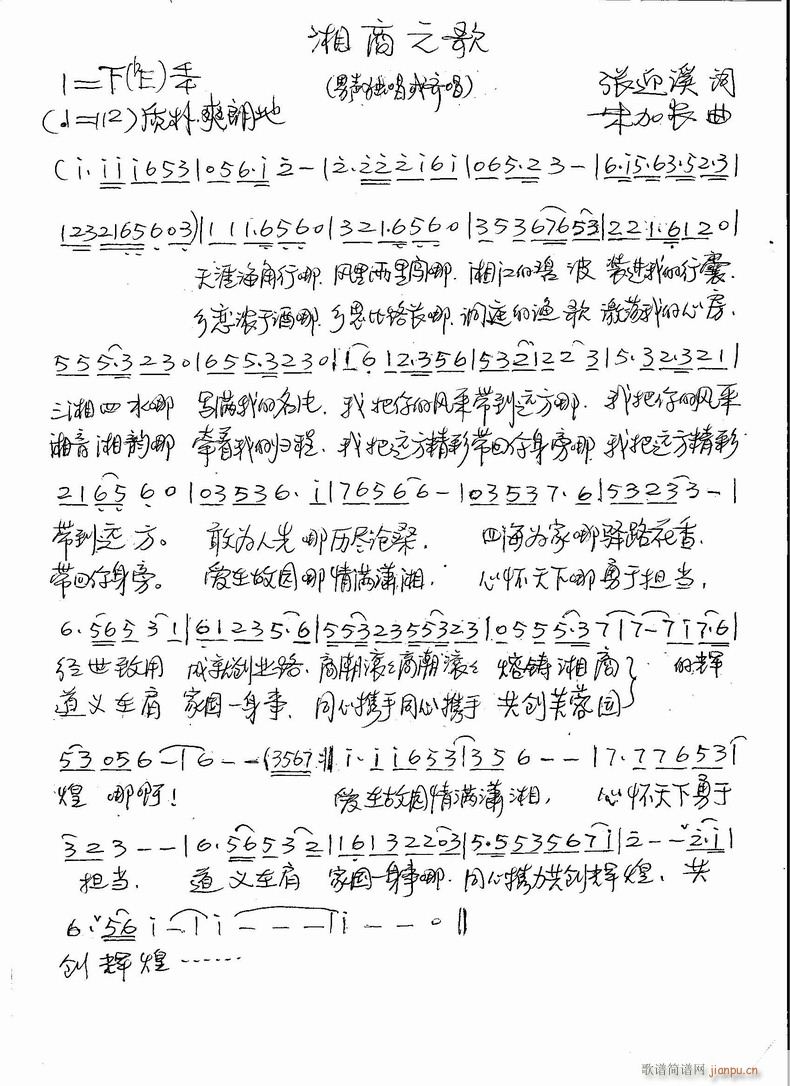 湘商之歌
(男声独唱或齐唱)
张迎溪 词
曲
(♩=112) 质朴.爽朗地
(i. i i i 6 5 3 | 0 5 6. i 2 - | 2. 2 2 2 i 6 i | 0 6 5. 2 3 - | 6. i 5. 6 3. 5 2. 3 |
1 2 3 2 1 6 5 6 0 3) | 1 1 1. 6 5 6 0 | 3 2 1. 6 5 6 0 | 3 5 3 6 7 6 5 3 | 2 2 1. 6 1 2 0 |
天涯海角行哪. 风里雨里闯哪. 湘江的碧波 装进我的行囊.
乡恋浓于酒哪. 乡思比路长哪. 洞庭的渔歌 激荡我的心房.
5 5 5 5. 3 2 3 0 | 6 5 5. 3 2 3 0 | i 6 1 2. 3 5 6 | 5 3 2 1 2 2 3 | 5. 3 2. 3 2 1 |
三湘四水哪 写满我的名片. 我把你的风采带到远方哪. 我把你的风采
湘音湘韵哪 牵着我的归程. 我把远方精彩带回你身旁哪. 我把远方精彩
2 1 6 5 6 0 | 0 3 5 3 6. i | 7 6 5 6 6 - | 0 3 5 3 7. 6 | 5 3 2 3 3 - |
带到远方。 敢为人先哪历尽沧桑. 四海为家哪驿路花香.
带回你身旁。 爱在故园哪情满潇湘. 心怀天下哪勇于担当,
6. 5 6 5 3 1 | 6 1 2 3 5. 6 | 5 5 3 2 3 5 5 3 2 3 | 0 5 5 5. 3 7 | 7 - 7 i 7. 6 |
经世致用 成就创业路. 商潮滚滚商潮滚滚 熔铸湘商 的辉
道义在肩 家国一身事. 同心携手同心携手 共创芙蓉国
5 3 0 5 6 - | 6 - - (3 5 6 7 :‖ i. i i 6 5 3 | 3 5 6 - - | 7. 7 7 6 5 3 |
煌 哪啊! 爱在故园情满潇湘, 心怀天下勇于
3 2 3 - - | 6. 5 6 5 3 2 | 1 6 1 3 2 2 0 3 | 5. 5 5 3 5 6 7 i | 2 - - 2. i |
担当. 道义在肩 家国一身事哪. 同心携力共创辉煌、共
6 i. 5 6 i - | i - - - | i - - 0 ‖
创辉煌……
歌谱简谱网
jianpu.cn